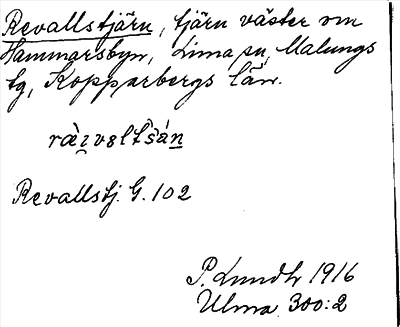 Revallstjärn, tjärn väster om
Hammarsbyn, Lima sn, Malungs
tg, Kopparbergs län.
Revallstj. G. 102
P. Lundh 1916
Ulma 300:2